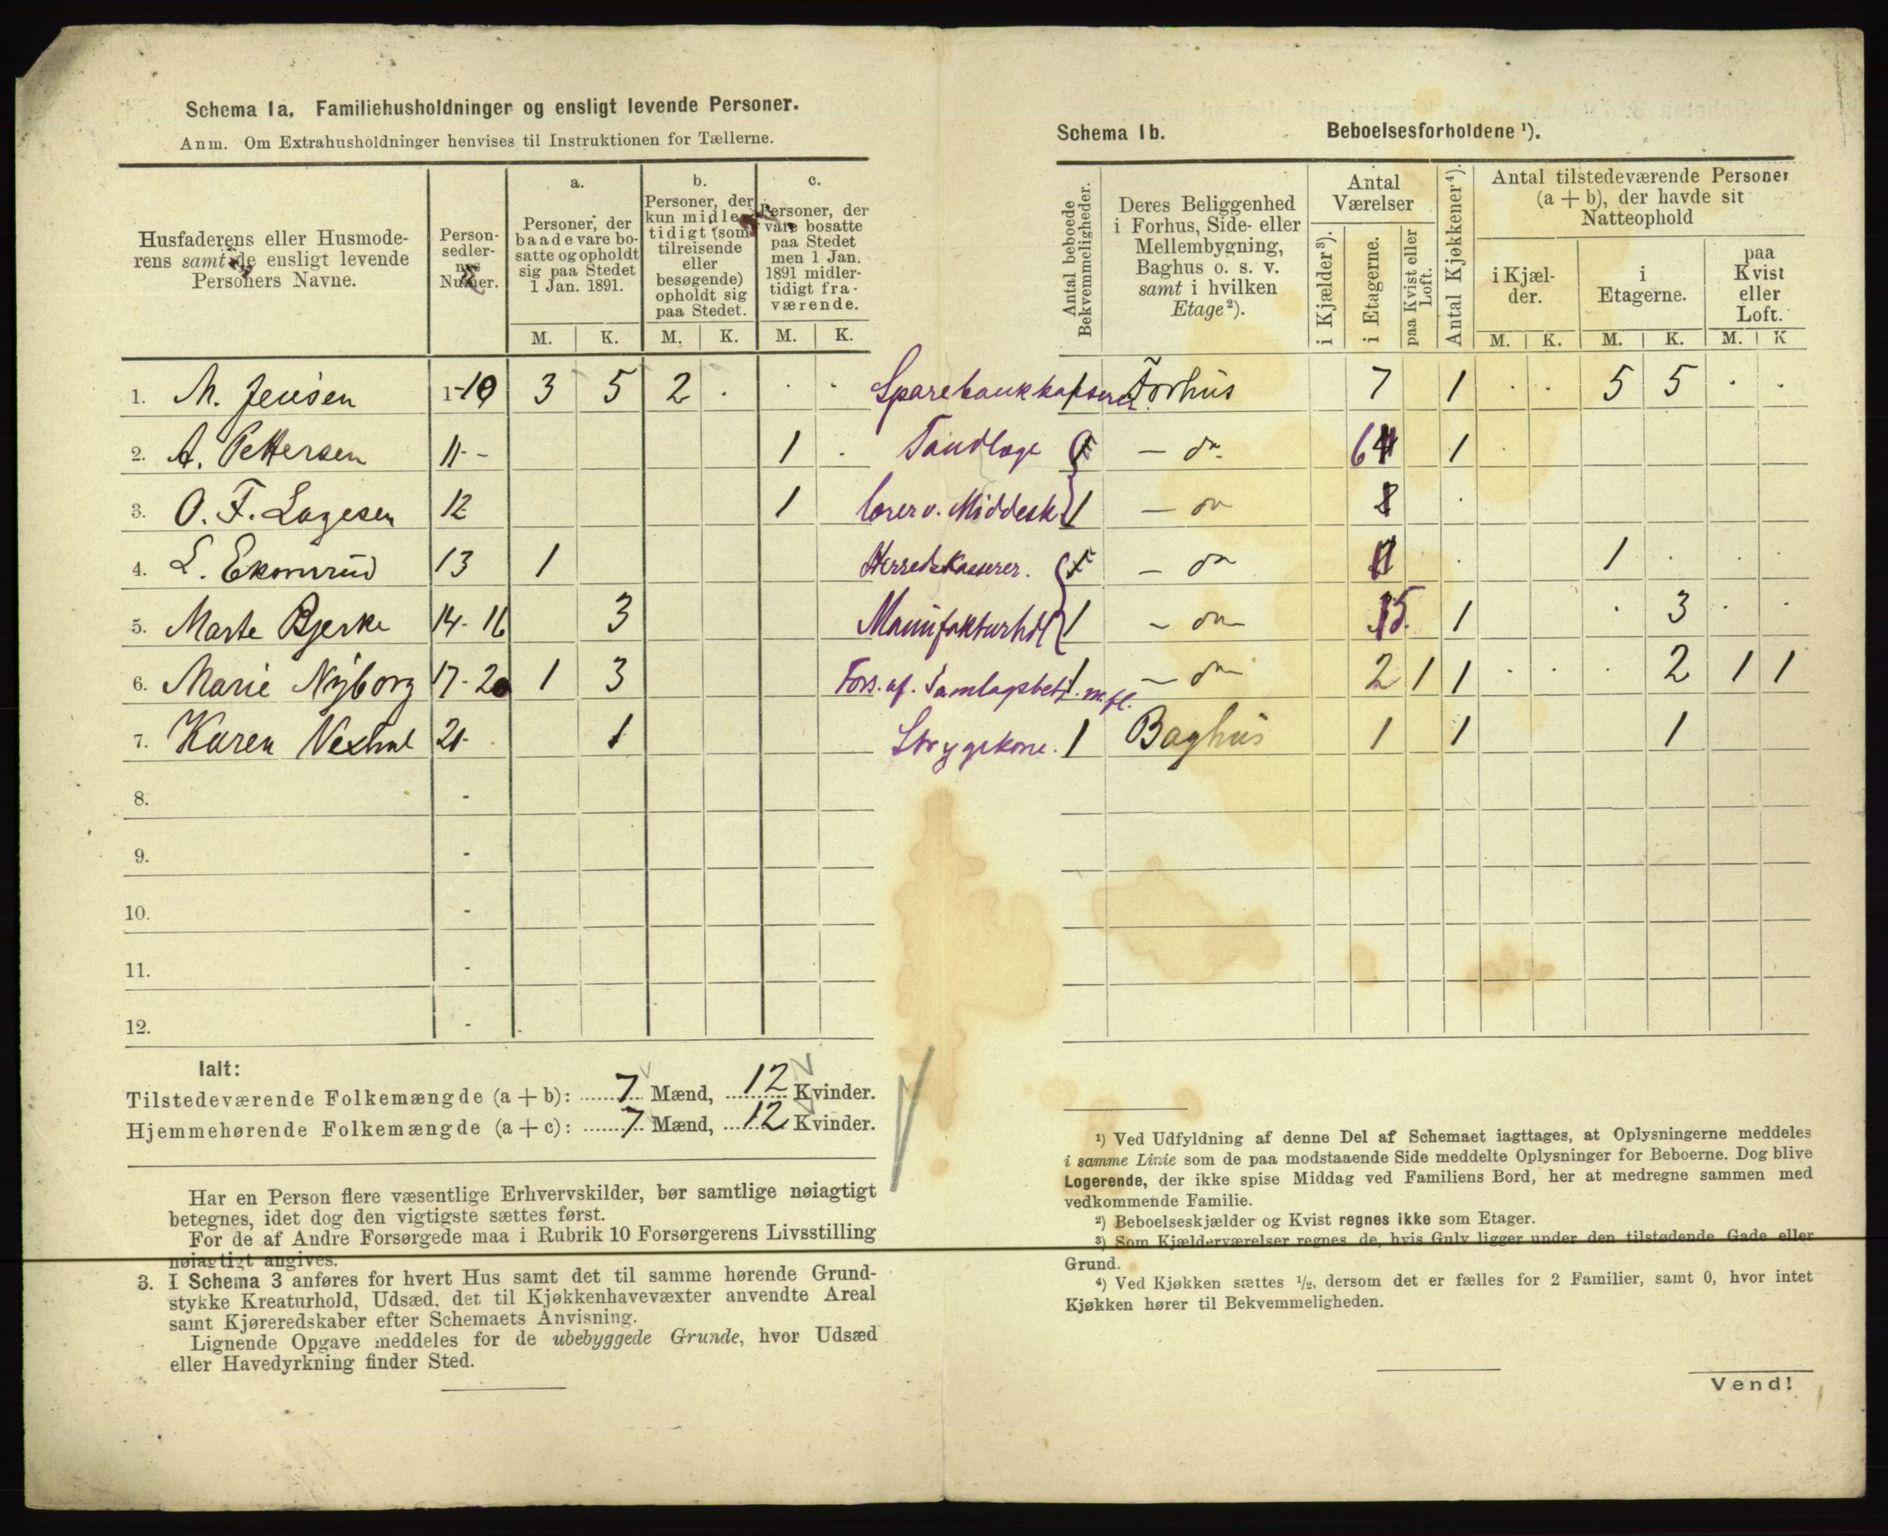 Schema 1a. Familiehusholdninger og ensligt levende Personer.
Anm. Om Extrahusholdninger henvises til Instruktionen for Tællerne.
Husfaderens eller Husmode-
rens samt de ensligt levende
Personers Navne.
Person-
sedler-
nes
Numer.
a.
Personer, der
baade vare bo-
satte og opholdt
sig paa Stedet
1 Jan. 1891.
b.
Personer, der
kun midler-
tidigt (som
tilreisende
eller
besøgende)
opholdt sig
paa Stedet.
c.
Personer, der
vare bosatte
paa Stedet
men 1 Jan.
1891 midler-
tidigt fra-
værende.
M. K. M. K. M. K.
1. M. Jensen 1-10 3 5 2 . . .
2. A. Pettersen 11- 1 .
3. O. F. Lagesen 12 1
4. L. Ekornrud 13 1
5. Marte Bjerke 14-16 3
6. Marie Nyborg 17-20 1 3
7. Karen 21- 1
8. -
9. -
10. -
11. -
12. -
Ialt:
Tilstedeværende Folkemængde (a + b): 7 Mænd, 12 Kvinder.
Hjemmehørende Folkemængde (a + c): 7 Mænd, 12 Kvinder.
Har en Person flere væsentlige Erhvervskilder, bør samtlige nøiagtigt
betegnes, idet dog den vigtigste sættes først.
For de af Andre Forsørgede maa i Rubrik 10 Forsørgerens Livsstilling
nøiagtigt angives.
3. I Schema 3 anføres for hvert Hus samt det til samme hørende Grund-
stykke Kreaturhold, Udsæd, det til Kjøkkenhavevæxter anvendte Areal
samt Kjøreredskaber efter Schemaets Anvisning.
Lignende Opgave meddeles for de ubebyggede Grunde, hvor Udsæd
eller Havedyrkning finder Sted.
Schema 1b. Beboelsesforholdene ¹).
Antal beboede
Bekvemmeligheder.
Deres Beliggenhed
i Forhus, Side- eller
Mellembygning,
Baghus o. s. v.
samt i hvilken
Etage ²).
Antal
Værelser
i Kjælder ³).
i Etagerne.
paa Kvist eller
Loft.
Antal Kjøkkener ⁴).
Antal tilstedeværende Personer
(a + b), der havde sit
Natteophold
i Kjæl-
der.
i
Etagerne.
paa
Kvist
eller
Loft.
M. K. M. K. M. K
Sparebankkasserer 1 Forhus 7 1 . . 5 5 . .
Tandlæge - do 6 1 .
Lærer v. Middesk 1 - do .
Herredskasserer. - do . . 1 . . .
Manufakturhdl 1 - do 5. 1 . 3 . .
Fors. af. Samlagsbet. m.fl. 1 - do 2 1 1 . . . 2 1 1
Strygekone. 1 Baghus 1 1 1
¹) Ved Udfyldning af denne Del af Schemaet iagttages, at Oplysningerne meddeles
i samme Linie som de paa modstaaende Side meddelte Oplysninger for Beboerne. Dog blive
Logerende, der ikke spise Middag ved Familiens Bord, her at medregne sammen med
vedkommende Familie.
²) Beboelseskjælder og Kvist regnes ikke som Etager.
³) Som Kjælderværelser regnes de, hvis Gulv ligger under den tilstødende Gade eller
Grund.
⁴) Ved Kjøkken sættes ½, dersom det er fælles for 2 Familier, samt 0, hvor intet
Kjøkken hører til Bekvemmeligheden.
Vend!